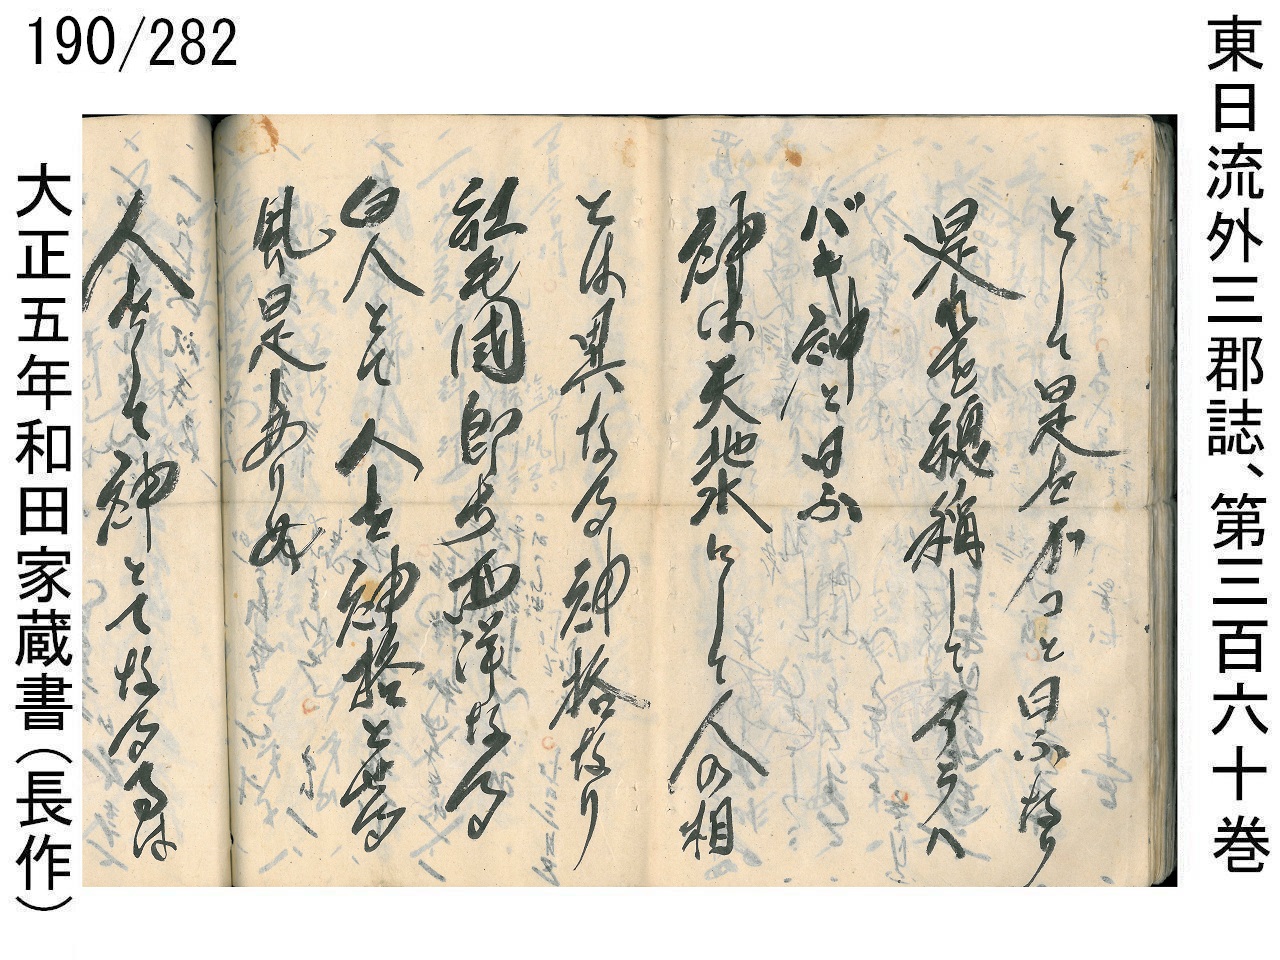 190/282
東日流外三郡誌、第三百六十巻
として是をカコと曰ふなり
是れを総称してイシラヘ
バキ神と曰ふ
神は天地水にして人の相
とは異なる神格なり
紅毛國即ち西洋なる
白人とて人を神格とせる
風是ありぬ
人をして神とてなる
大正五年和田家蔵書(長作)